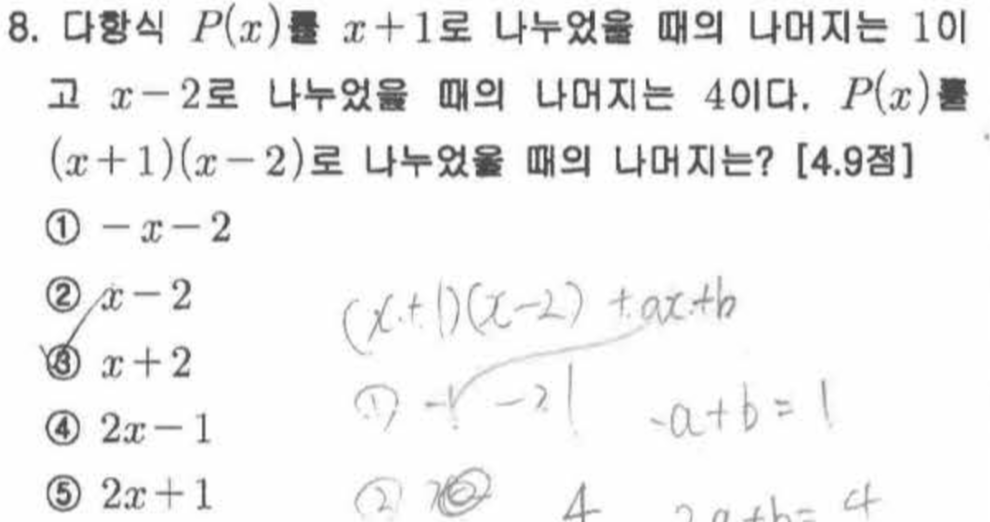 8. 다항식 P(x)를 x+1로 나누었을 때의 나머지는 1이
고 x-2로 나누었을 때의 나머지는 4이다. P(x)를
(x+1)(x-2)로 나누었을 때의 나머지는? [4.9점]
① -x-2
② x-2
③ x+2
④ 2x-1
⑤ 2x+1
(x+1)(x-2) +ax+b
① -1 -a+b=1
② 4 2a+b=4